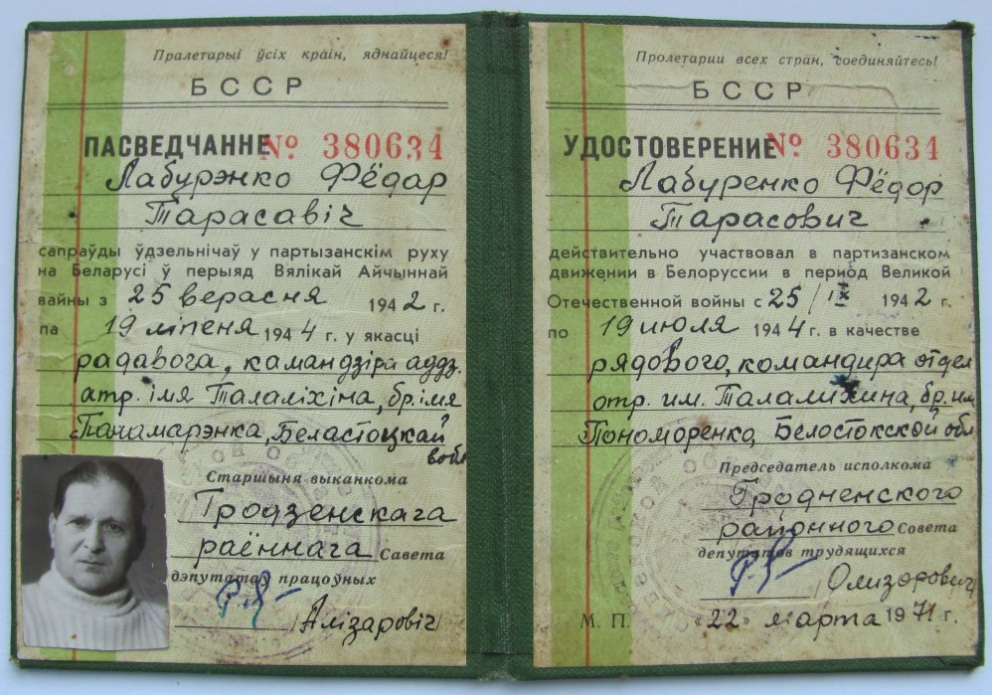 Пралетарыі ўсіх краін, яднайцеся!
БССР
ПАСВЕДЧАННЕ № 380634
Лабурэнко Фёдар
Тарасавіч
сапраўды ўдзельнічаў у партызанскім руху
на Беларусі ў перыяд Вялікай Айчыннай
вайны з 25 верасня 1942 г.
па 19 ліпеня 1944 г. у якасці
радавога, камандзіра аддз.
атр. імя Талаліхіна, бр. імя
Панамарэнка, Беластоцкай
вобл
Старшыня выканкома
Гродзенскага
раённага Савета
дэпутатаў працоўных
/Алізаровіч/
Пролетарии всех стран, соединяйтесь!
БССР
УДОСТОВЕРЕНИЕ № 380634
Лабуренко Фёдор
Тарасович
действительно участвовал в партизанском
движении в Белоруссии в период Великой
Отечественной войны с 25/IX 1942 г.
по 19 июля 1944 г. в качестве
рядового, командира отдел
отр. им. Талалихина, бр. им
Пономоренко, Белостокской обл
Председатель исполкома
Гродненского
районного Совета
депутатов трудящихся
/Олизарович/
М. П. «22» марта 1971 г.